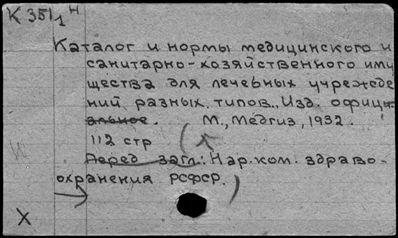 К 35/1 Н
Каталог и нормы медицинского и
санитарно-хозяйственного иму
щества для лечебных учрежде
ний разных типов., Изд. офици
альное. М., Медгиз, 1932.
112 стр
Перед загл.: Нар. ком. здраво-
охранения РСФСР.)
X